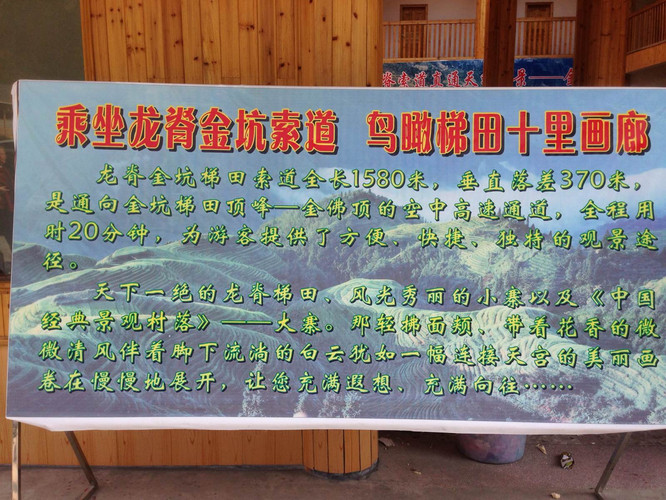 乘坐龙脊金坑索道 鸟瞰梯田十里画廊
龙脊金坑梯田索道全长1580米，垂直落差370米，
是通向金坑梯田顶峰—金佛顶的空中高速通道，全程用
时20分钟，为游客提供了方便、快捷、独特的观景途
径。
天下一绝的龙脊梯田、风光秀丽的小寨以及《中国
经典景观村落》——大寨。那轻拂面颊、带着花香的微
微清风伴着脚下流淌的白云犹如一幅连接天宫的美丽画
卷在慢慢地展开，让您充满遐想、充满向往……